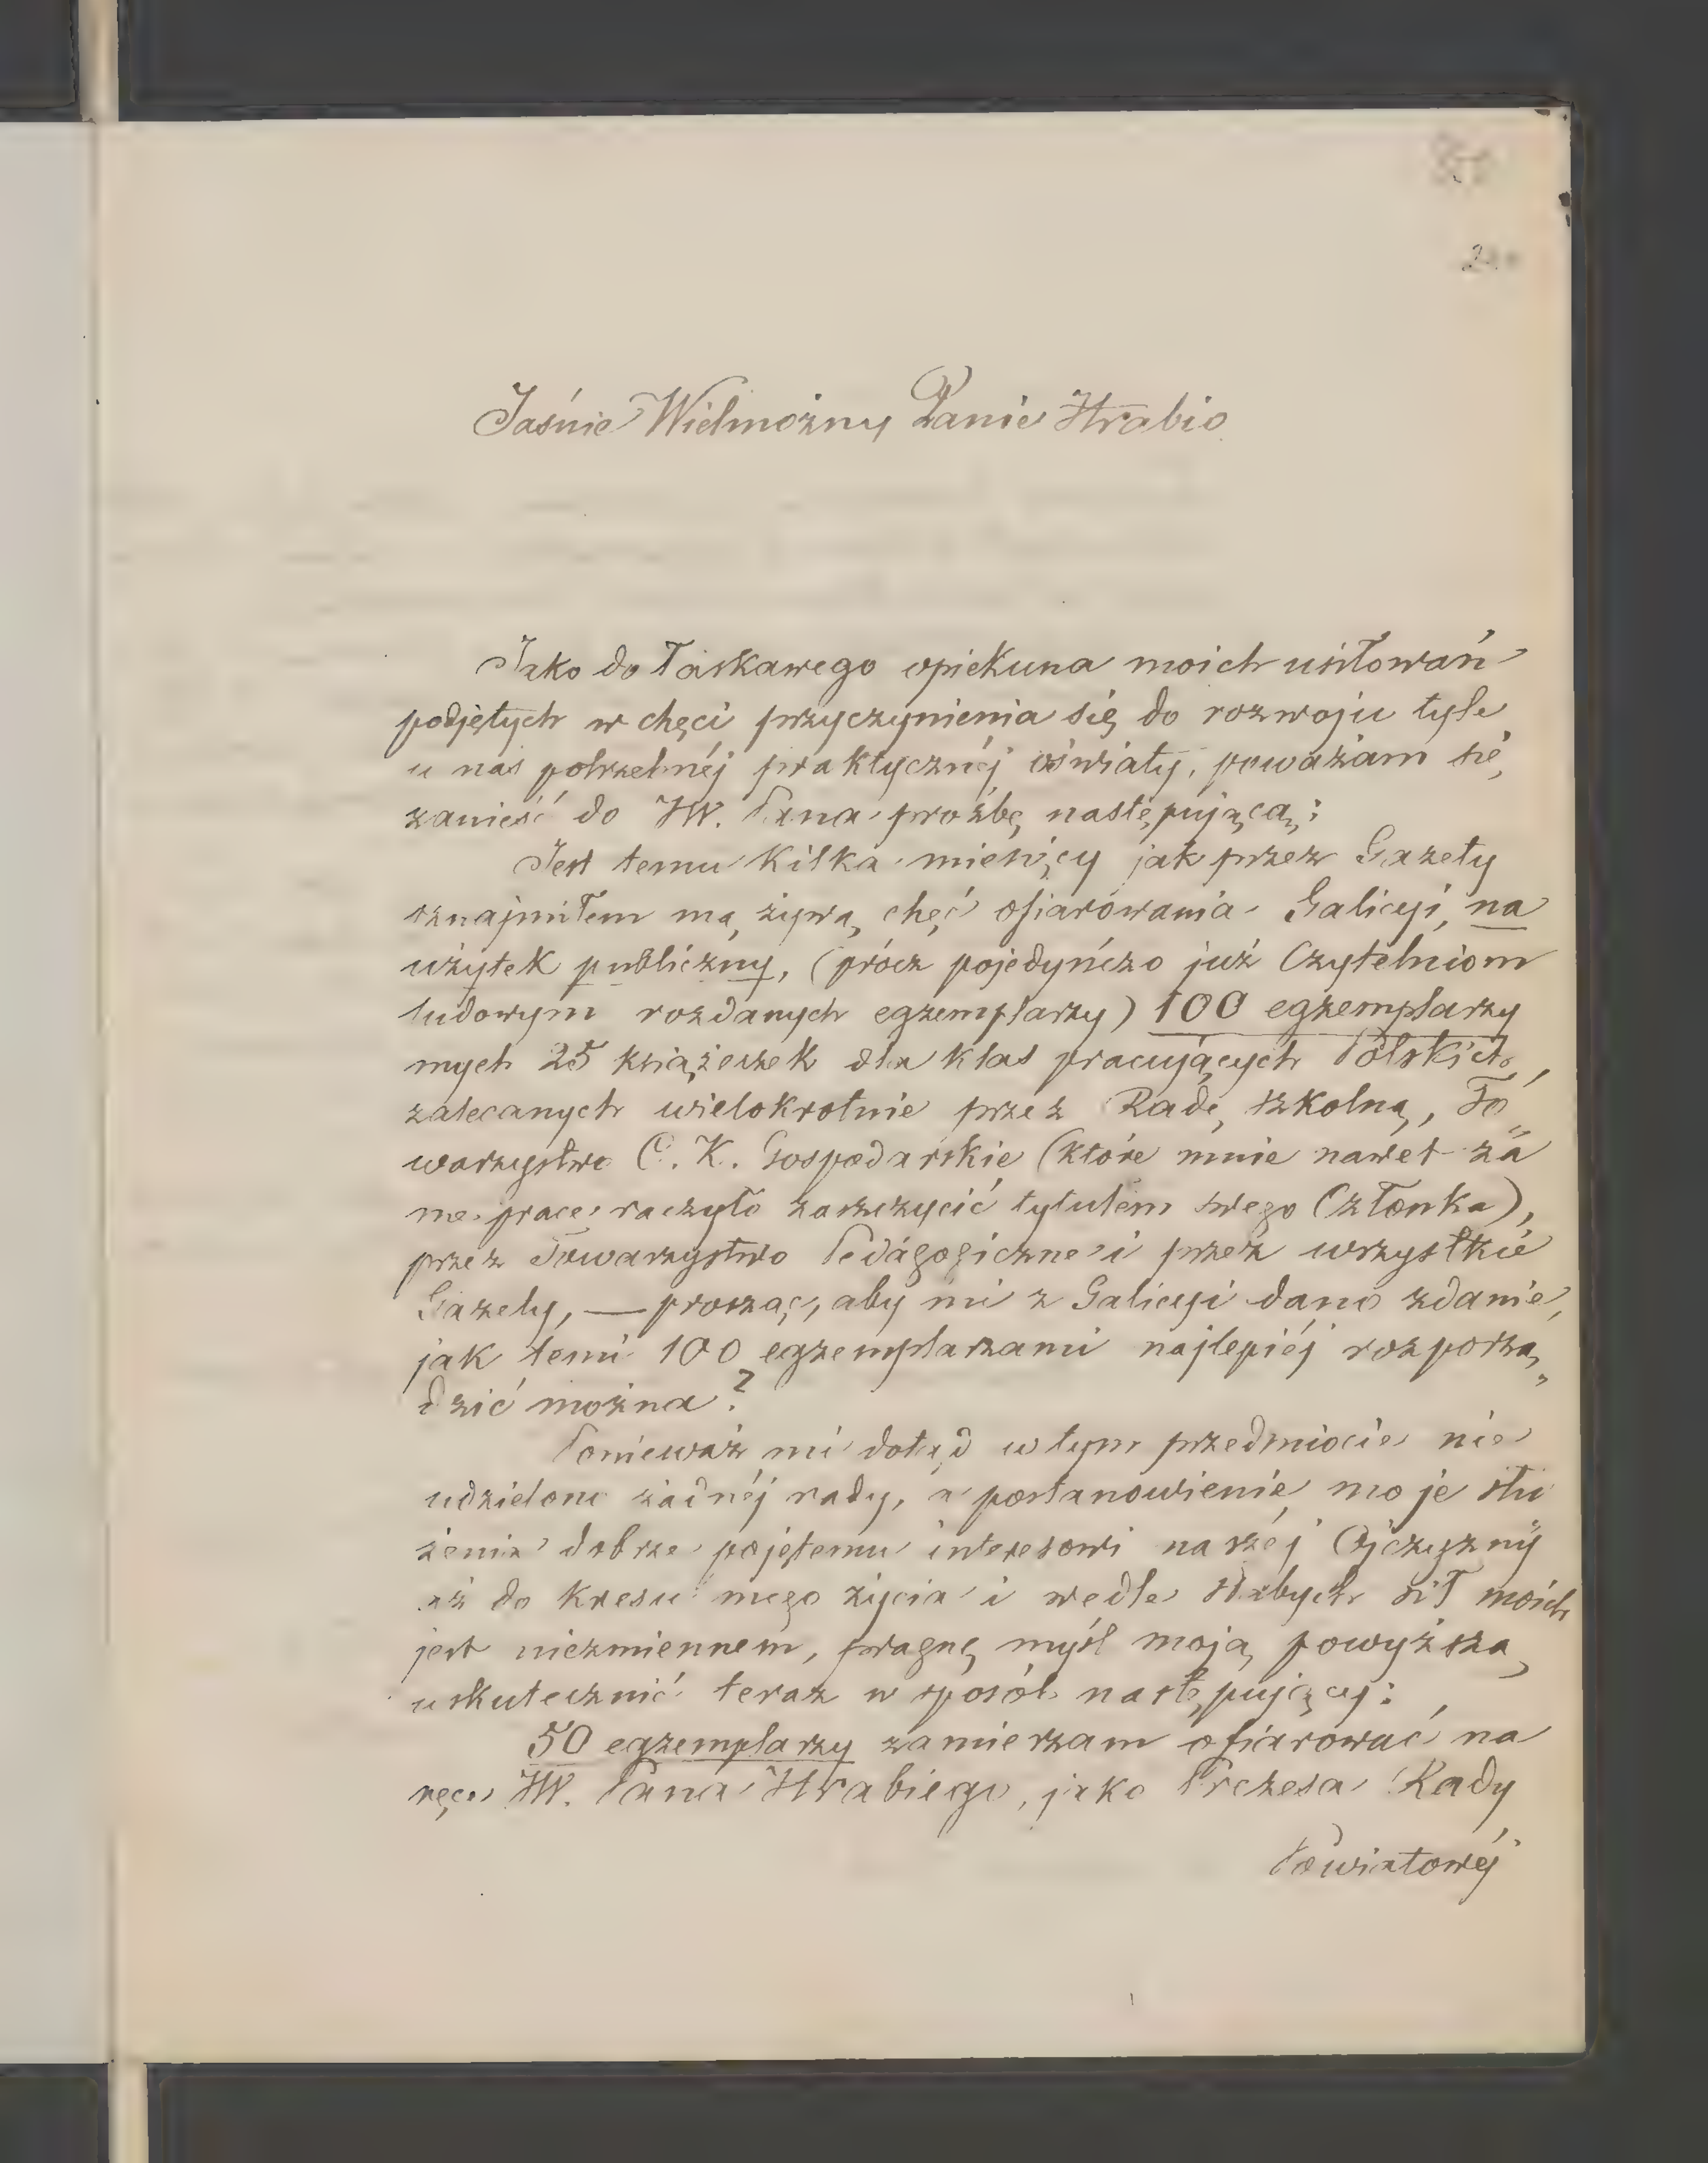 Jaśnie Wielmożny Panie Hrabio
Jako do łaskawego opiekuna moich usiłowań
podjętych w chęci przyczynienia się do rozwoju tyle
u nas potrzebnéj praktycznéj oświaty, poważam się
zanieść do JW. Pana prożbę następującą:
Jest temu kilka miesięcy jak przez Gazety
oznajmiłem mą żywą chęć ofiarówania Galicyi, na
użytek publiczny, (prócz pojedyńczo już Czytelniom
ludowym rozdanych egzemplarzy) 100 egzemplarzy
mych 25 książeczek dla klas pracujących Polskich,
zalecanych wielokrotnie przez Radę szkolną, To
warzystwo C. K. Gospodarskie (które mnie nawet za
me prace raczyło zaszczycić tytułem swego Członka),
przez Towarzystwo Pedagogiczne i przez wszystkie
Gazety, — prosząc, aby mi z Galicyi dano zdanie,
jak temi 100 egzemplarzami najlepiéj rozporzą„
dzić można?
Ponieważ mi dotąd w tym przedmiocie nie
udzielono żadnéj rady, a postanowienie moje słu
żenia dobrze pojętemu interesowi naszéj Ojczyzny
aż do kresu mego życia i wedle słabych sił moich
jest niezmiennem, pragnę myśl moją powyższą
uskutecznić teraz w sposób następujący:
50 egzemplarzy zamierzam ofiarować na
ręce JW. Pana Hrabiego, jako Prezesa Rady
Powiatowéj